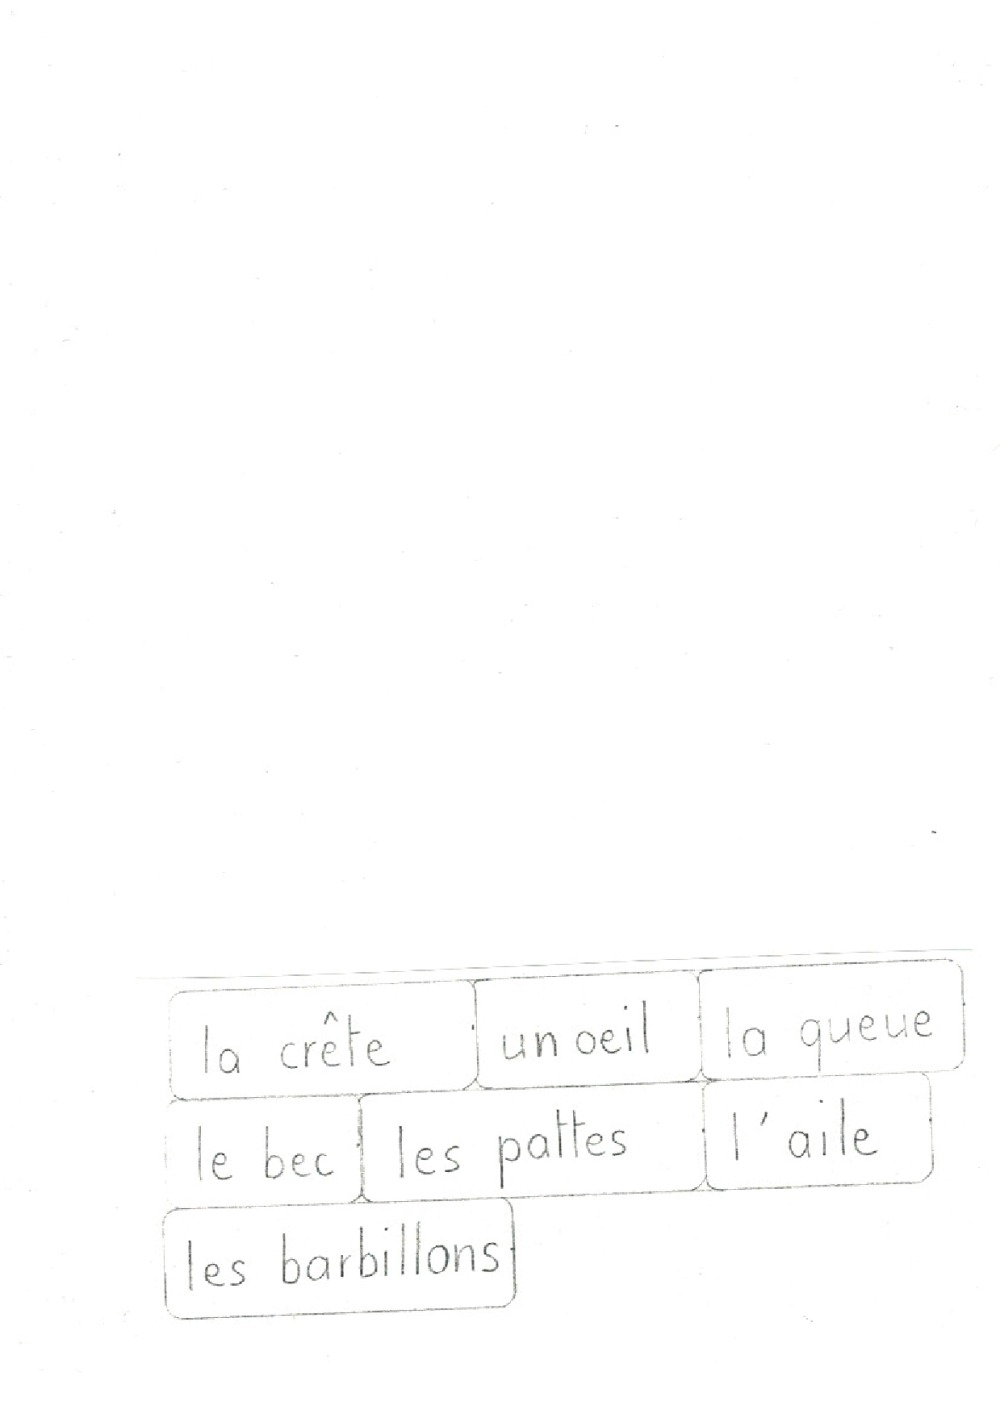 la crête un oeil la queue
le bec les pattes l'aile
les barbillons